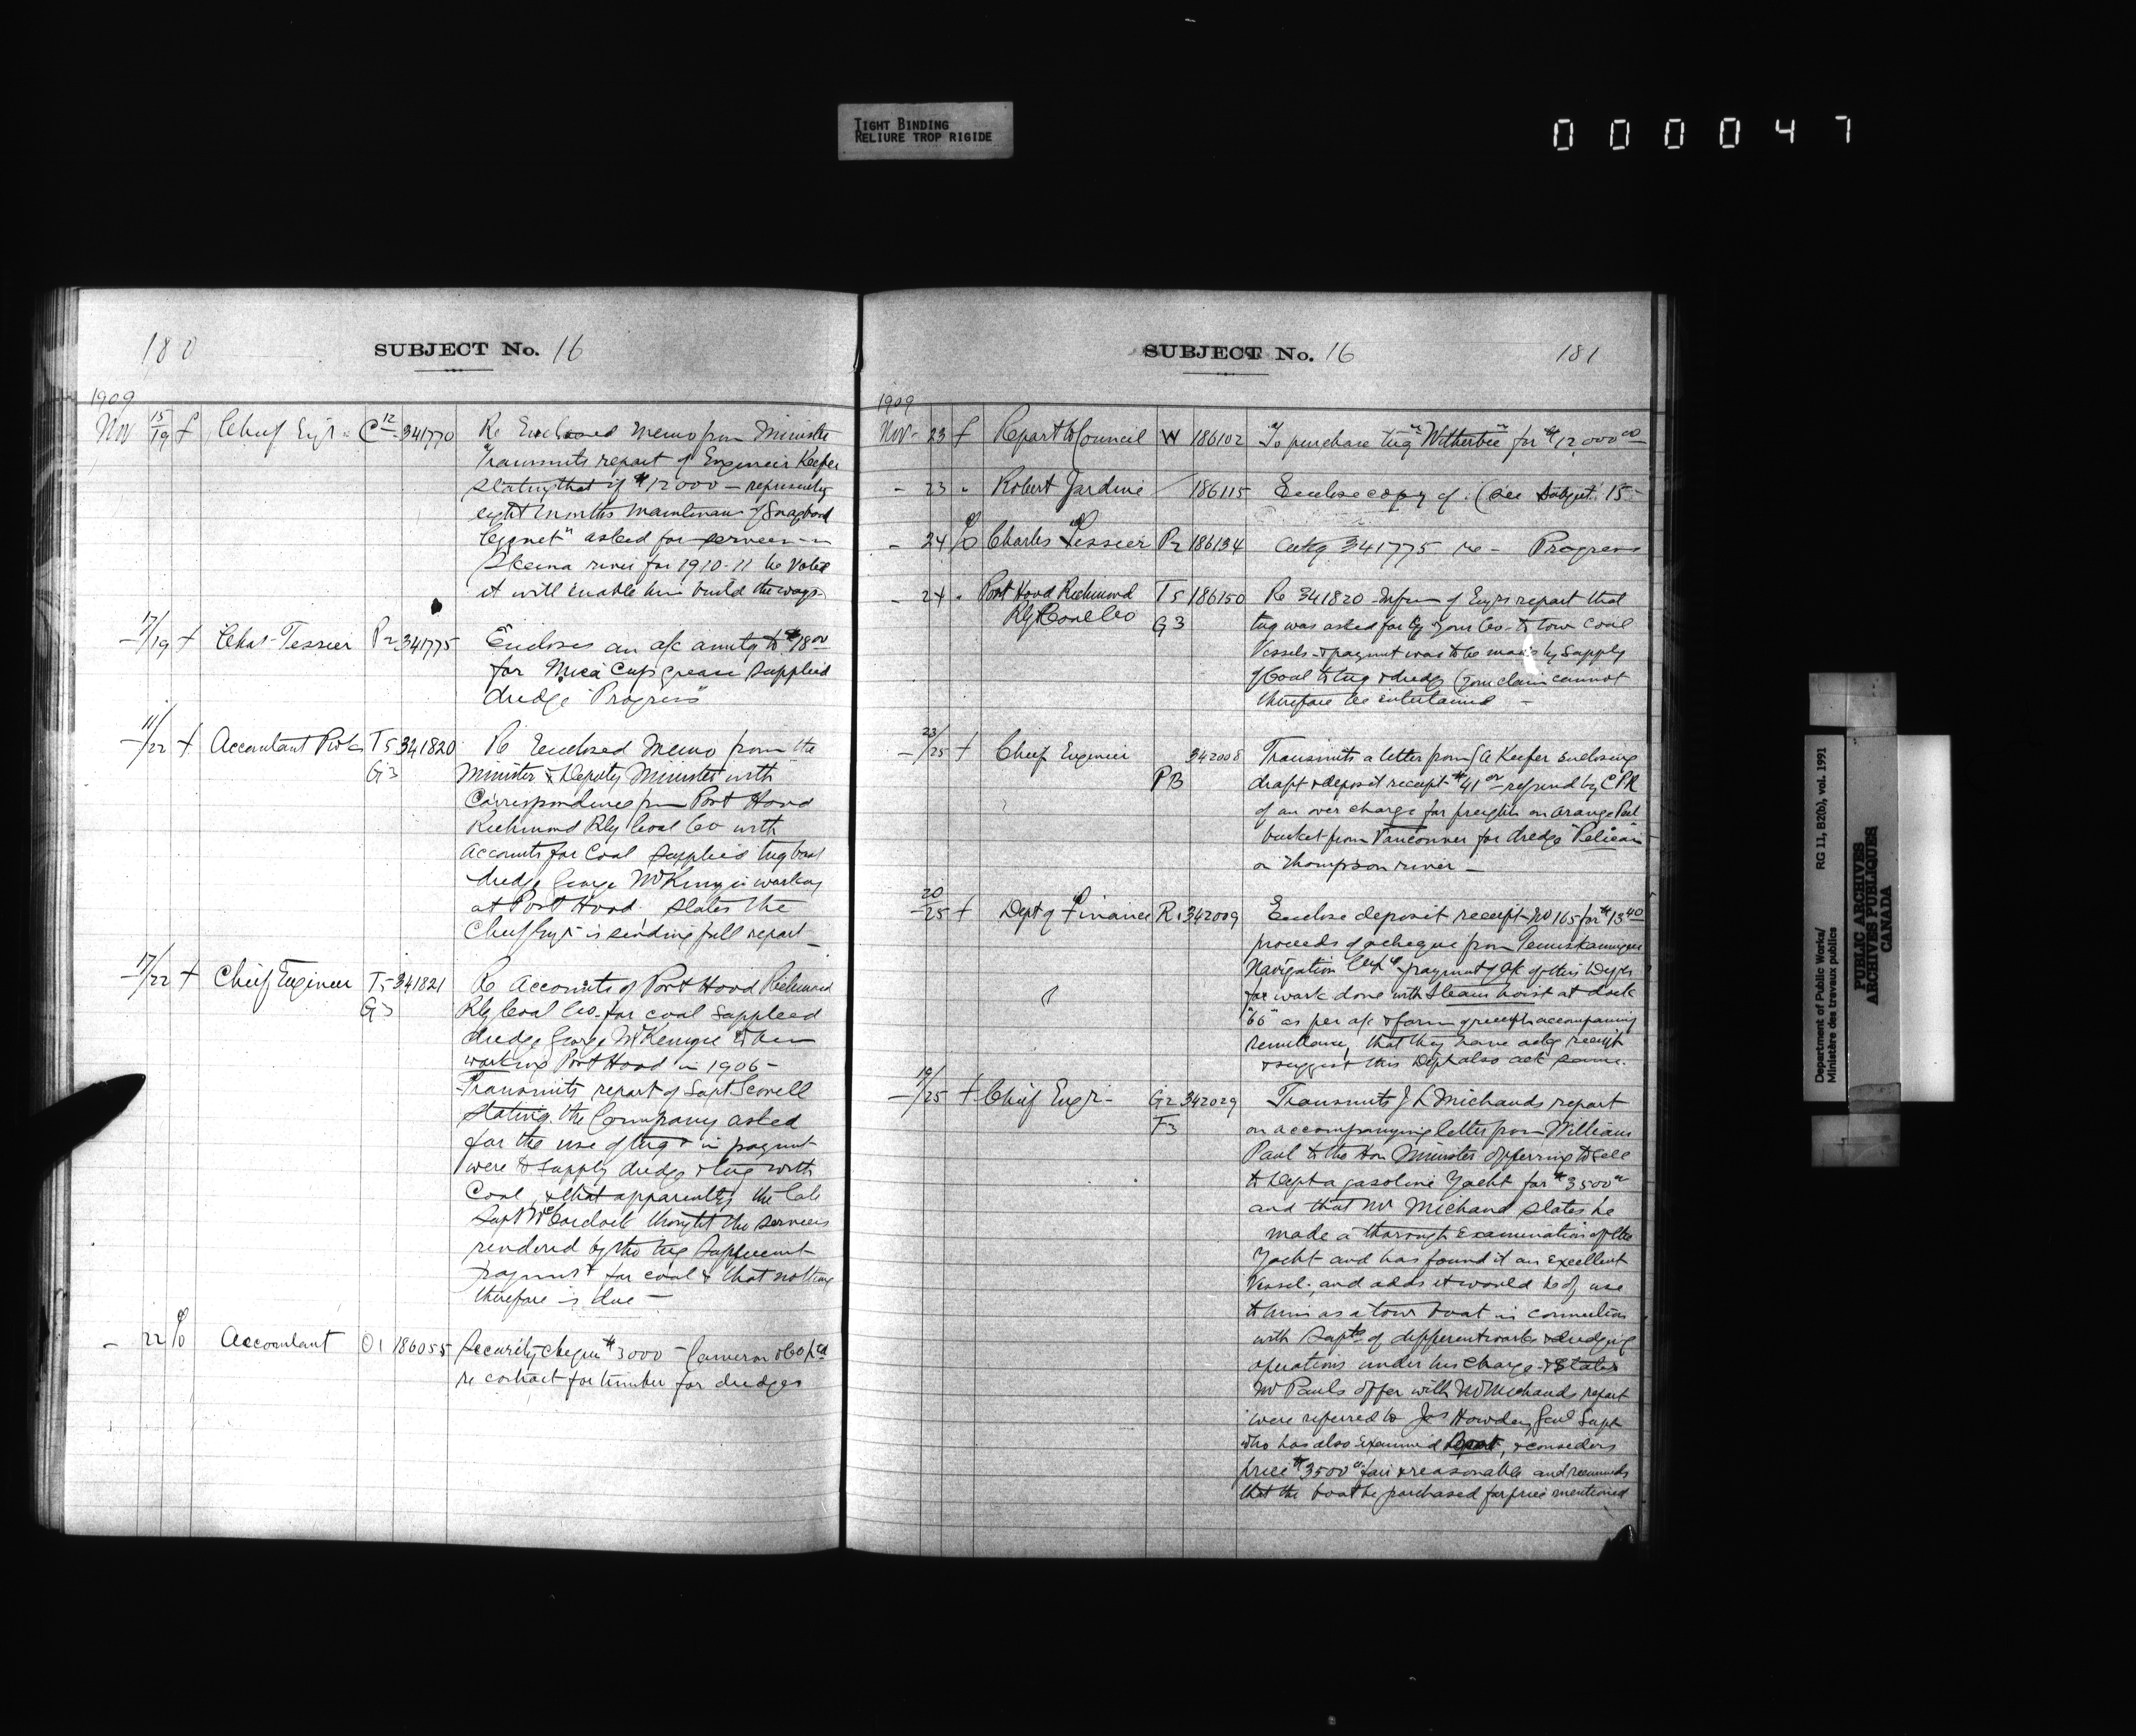 TIGHT BINDING
RELIURE TROP RIGIDE
000047
180
SUBJECT No. 16
1909
Nov 15/19 f Chief Engr. C12 341770 Re Enclosed memo from Minister
Transmits report of Engineer Keefer
stating that if $12000 — represents
eight months maintenance of Snagboat
asked for services in
Skeena river for 1910-11 be voted
it will enable him build the ways.
17/19 f Chas. Tessier P2 341775 Encloses an a/c amtg to $18.00
for Mica Cup grease supplied
dredge "Progress"
11/22 f Accountant P.W.C. T5 341820 Re Enclosed memo from the
G3 Minister & Deputy Minister with
Correspondence from Port Hood
Richmond Rly Coal Co with
Accounts for Coal supplied tug boat
dredge George McKenzie working
at Port Hood. States the
Chief Engr is sending full report —
17/22 f Chief Engineer T5 341821 Re Accounts of Port Hood Richmond
G3 Rly Coal Co. for coal supplied
dredge George McKenzie when
working Port Hood in 1906 –
Transmits report of Supt Scovell
stating the Company asked
for the use of tug & in payment
were to supply dredge & tug with
Coal, & that apparently the late
Supt thought the services
rendered by the tug sufficient
payment for coal & that nothing
therefore is due —
– 22 Accountant O1 186055 Security cheque $3000 – Cameron & Co Ltd
re contract for timber for dredges
SUBJECT No. 16
181
1909
Nov - 23 f Report to Council W 186102 To purchase tug "Witherbee" for $12,000.00
– 23 " Robert Jardine 186115 Enclose copy of. (See Subject 15 –
– 24 Charles Tessier P2 186134 Ackg 341775 re – Progress
– 24 " Port Hood Richmond T5 186150 Re 341820 – Inform of Engrs report that
Rly & Coal Co G3 tug was asked for by your Co. to tow coal
Vessels & payment was to be made by supply
of Coal to tug & dredge (your claim cannot
therefore be entertained –
23/25 f Chief Engineer 342008 Transmits a letter from G A Keefer enclosing
PB draft & deposit receipt $41.00 – refund by CPR
of an over charge for freights on Orange Peel
bucket from Vancouver for dredge "Pelican"
on Thompson river —
20/25 f Dept of Finance R1 342009 Enclose deposit receipt No 165 for $13.40
proceeds of a cheque from Temiskamingue
Navigation payment of a/c of this Dept
for work done with steam hoist at dock
"66" as per a/c & form of receipt accompanying
remittance, that they have ackg receipt
& suggest this Dept also ack same.
19/25 f Chief Engr – G2 342029 Transmits J L Michauds report
F3 on accompanying letter from William
Paul to the Hon Minister offering to sell
to Dept a gasoline Yacht for $3500.00
and that Mr Michaud states he
made a thorough Examination of the
Yacht and has found it an excellent
Vessel; and adds it would be of use
to him as a tow boat in connection
with Supts of different works & dredging
operations under his charge. & States
Mr Pauls offer with Mr Michauds report
were referred to Jas Howden, Genl Supt
who has also Examined boat, & considers
price $3500.00 fair & reasonable and recommends
that the boat be purchased for price mentioned
Department of Public Works/ RG 11, B2(b), vol. 1991
Ministère des travaux publics
PUBLIC ARCHIVES
ARCHIVES PUBLIQUES
CANADA